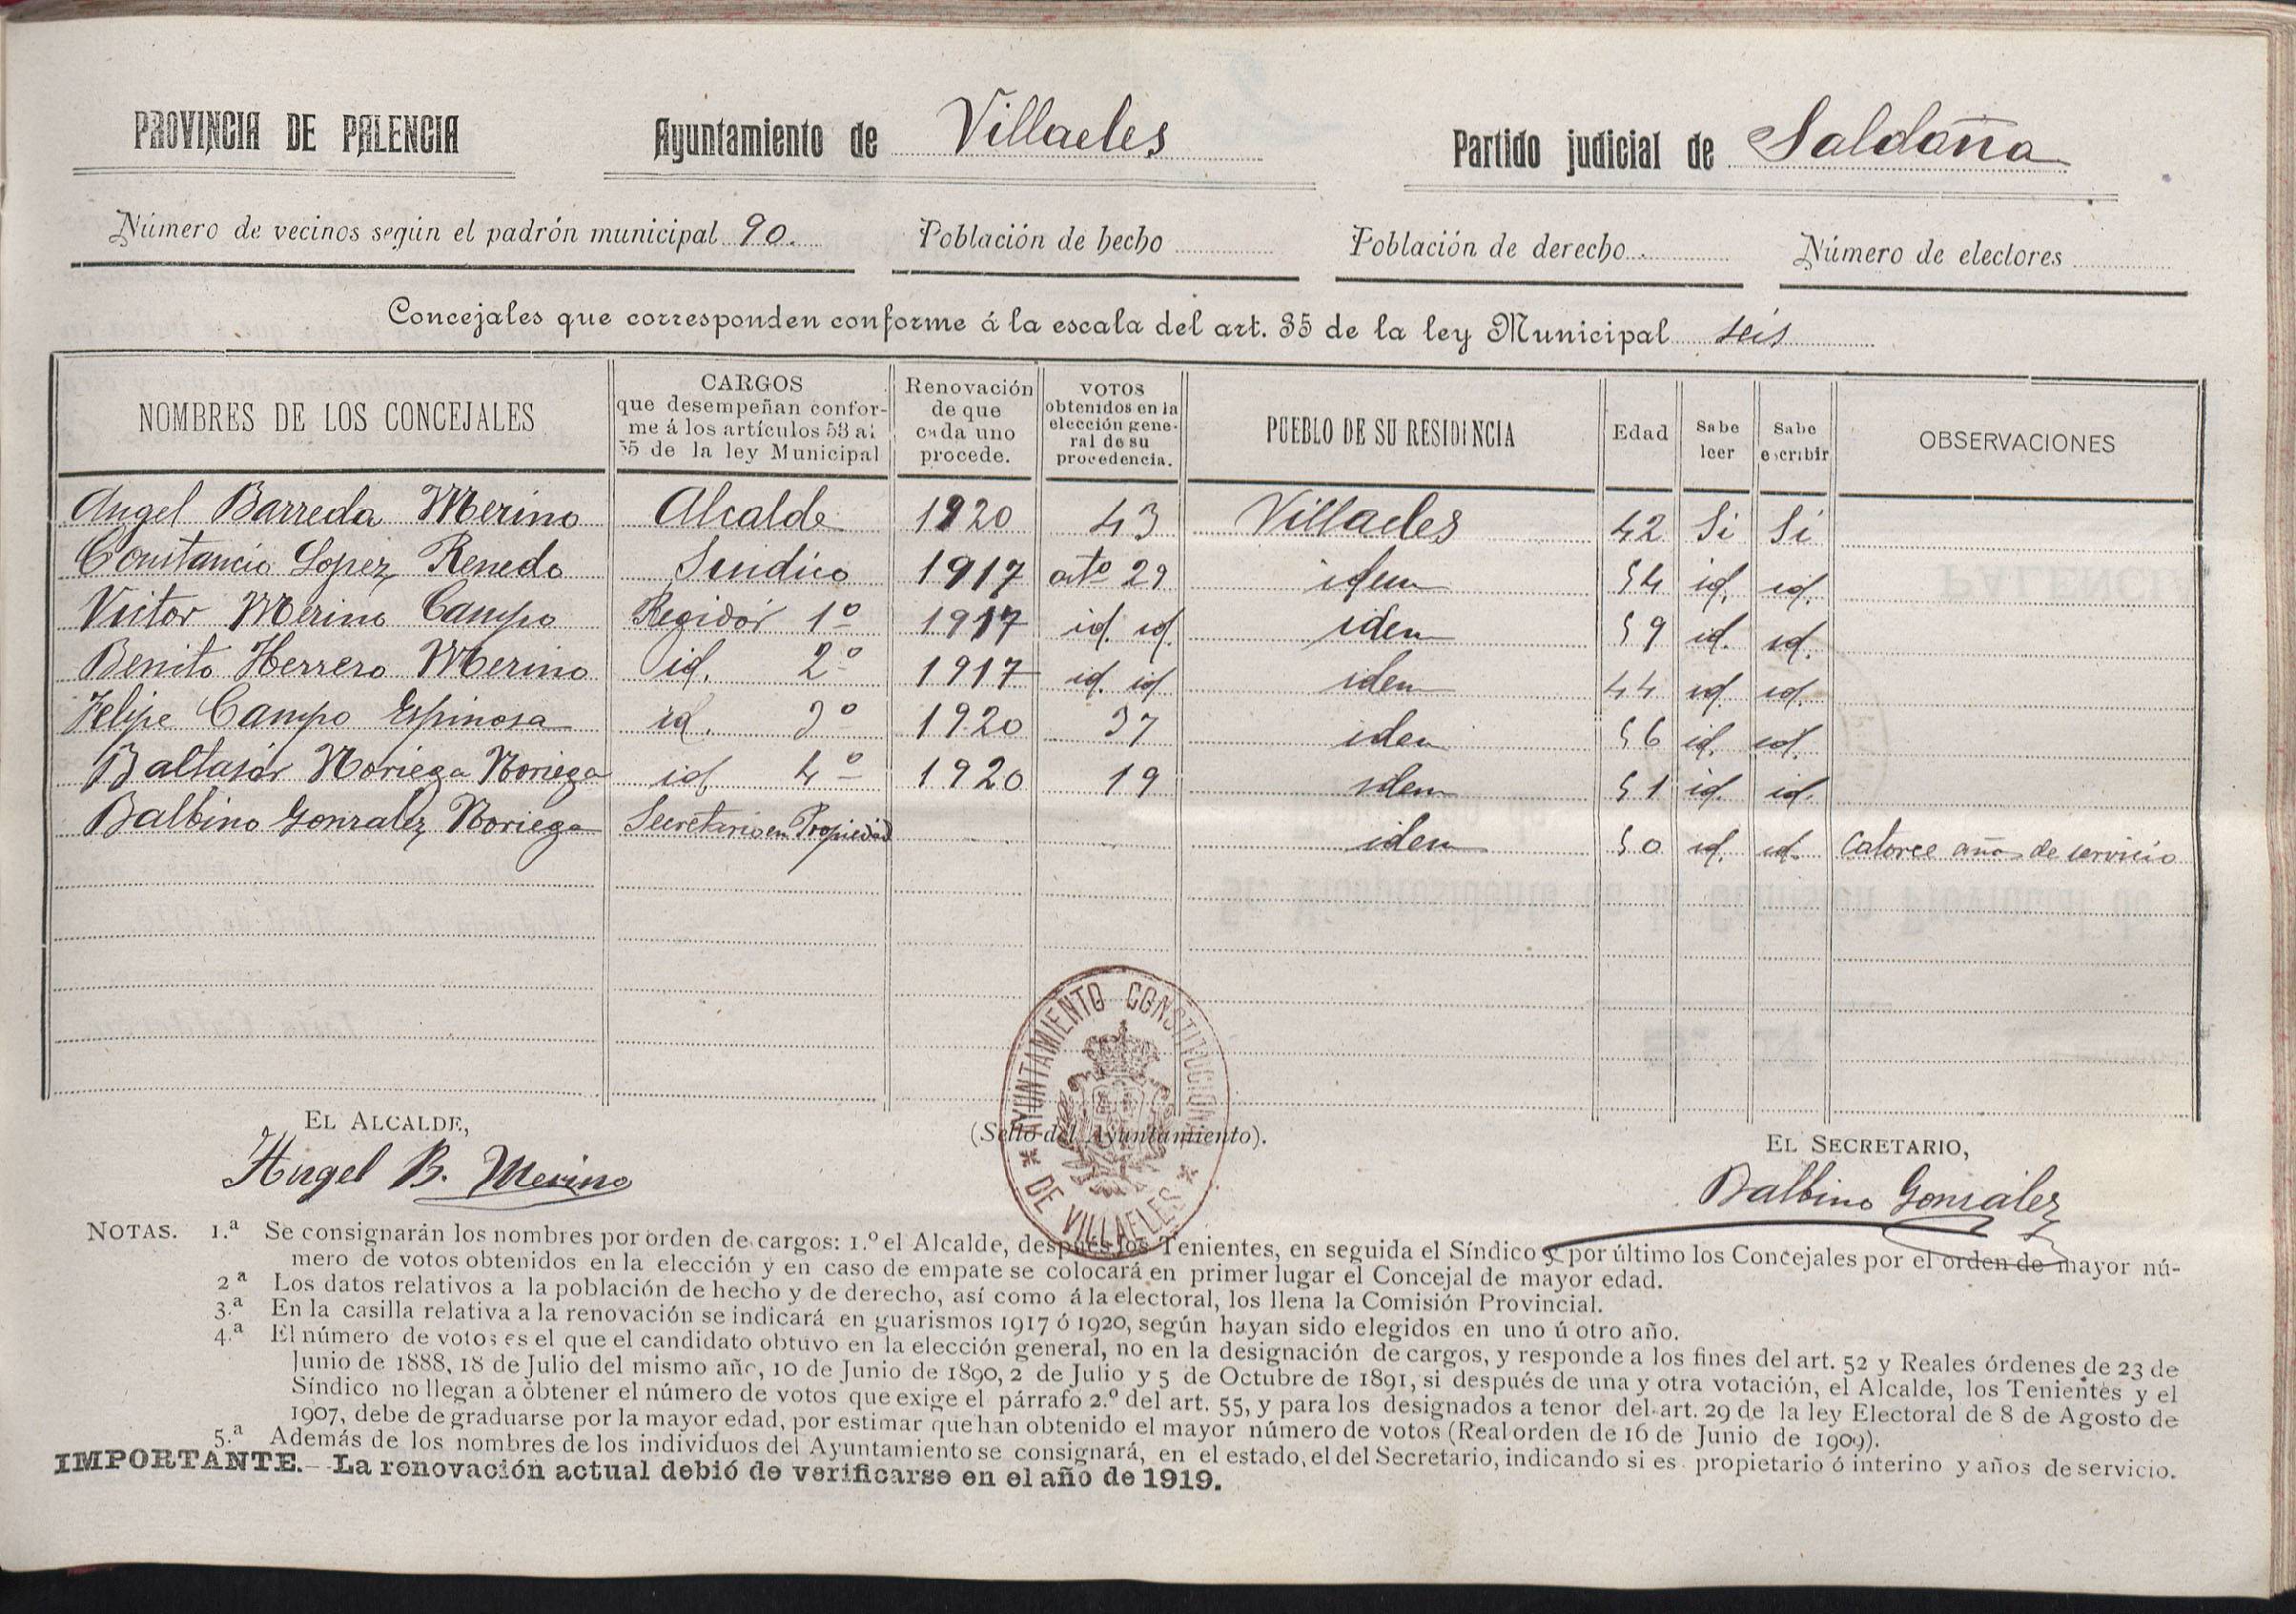 PROVINCIA DE PALENCIA Ayuntamiento de Villaeles Partido judicial de Saldaña
Número de vecinos según el padrón municipal 90. Población de hecho Población de derecho Número de electores
Concejales que corresponden conforme á la escala del art. 35 de la ley Municipal seis
NOMBRES DE LOS CONCEJALES
CARGOS
que desempeñan confor-
me á los artículos 53 al
55 de la ley Municipal
Renovación
de que
cada uno
procede.
VOTOS
obtenidos en la
elección gene-
ral de su
procedencia.
PUEBLO DE SU RESIDENCIA
Edad
Sabe
leer
Sabe
escribir
OBSERVACIONES
Angel Barreda Merino Alcalde 1920 43 Villaeles 42 Si Si
Constancio Lopez Renedo Sindico 1917 arto 29 idem 54 id. id.
Victor Merino Campo Regidor 1º 1917 id. id. idem 59 id. id.
Benito Herrero Merino id. 2º 1917 id. id idem 44 id. id.
Felipe Campo Espinosa id. 3º 1920 37 idem 56 id. id.
Baltasar Noriega Noriega id. 4º 1920 19 idem 51 id. id.
Balbino Gonzalez Noriega Secretario en Propiedad idem 50 id. id. Catorce años de servicio
EL ALCALDE,
Angel B. Merino
(Sello del Ayuntamiento).
AYUNTAMIENTO CONSTITUCIONAL
* DE VILLAELES *
EL SECRETARIO,
Balbino González
NOTAS. 1.ª Se consignarán los nombres por orden de cargos: 1.º el Alcalde, después los Tenientes, en seguida el Síndico y por último los Concejales por el orden de mayor nú-
mero de votos obtenidos en la elección y en caso de empate se colocará en primer lugar el Concejal de mayor edad.
2ª Los datos relativos a la población de hecho y de derecho, así como á la electoral, los llena la Comisión Provincial.
3.ª En la casilla relativa a la renovación se indicará en guarismos 1917 ó 1920, según hayan sido elegidos en uno ú otro año.
4.ª El número de votos es el que el candidato obtuvo en la elección general, no en la designación de cargos, y responde a los fines del art. 52 y Reales órdenes de 23 de
Junio de 1888, 18 de Julio del mismo año, 10 de Junio de 1890, 2 de Julio y 5 de Octubre de 1891, si después de una y otra votación, el Alcalde, los Tenientes y el
Síndico no llegan a obtener el número de votos que exige el párrafo 2.º del art. 55, y para los designados a tenor del art. 29 de la ley Electoral de 8 de Agosto de
1907, debe de graduarse por la mayor edad, por estimar que han obtenido el mayor número de votos (Real orden de 16 de Junio de 1909).
5.ª Además de los nombres de los individuos del Ayuntamiento se consignará, en el estado, el del Secretario, indicando si es propietario ó interino y años de servicio.
IMPORTANTE.—La renovación actual debió de verificarse en el año de 1919.